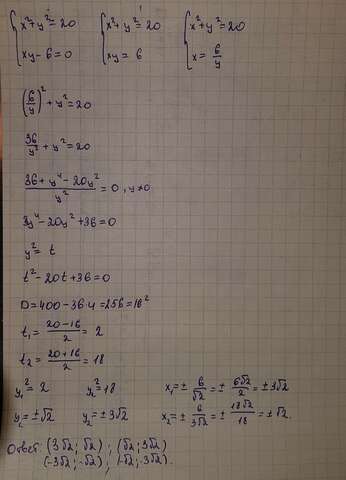 {x²+y²=20 {x²+y²=20 {x²+y²=20
{xy-6=0 {xy=6 {x=6/y
(6/y)²+y²=20
36/y²+y²=20
(36+y⁴-20y²)/y²=0, y≠0
y⁴-20y²+36=0
y²=t
t²-20t+36=0
D=400-36·4=256=16²
t₁=(20-16)/2=2
t₂=(20+16)/2=18
y₁²=2 y₂²=18 x₁=±6/√2=±6√2/2=±3√2
y₁=±√2 y₂=±3√2 x₂=±6/3√2=±18√2/18=±√2.
Ответ: (3√2;√2); (√2;3√2)
(-3√2;-√2); (-√2;-3√2).